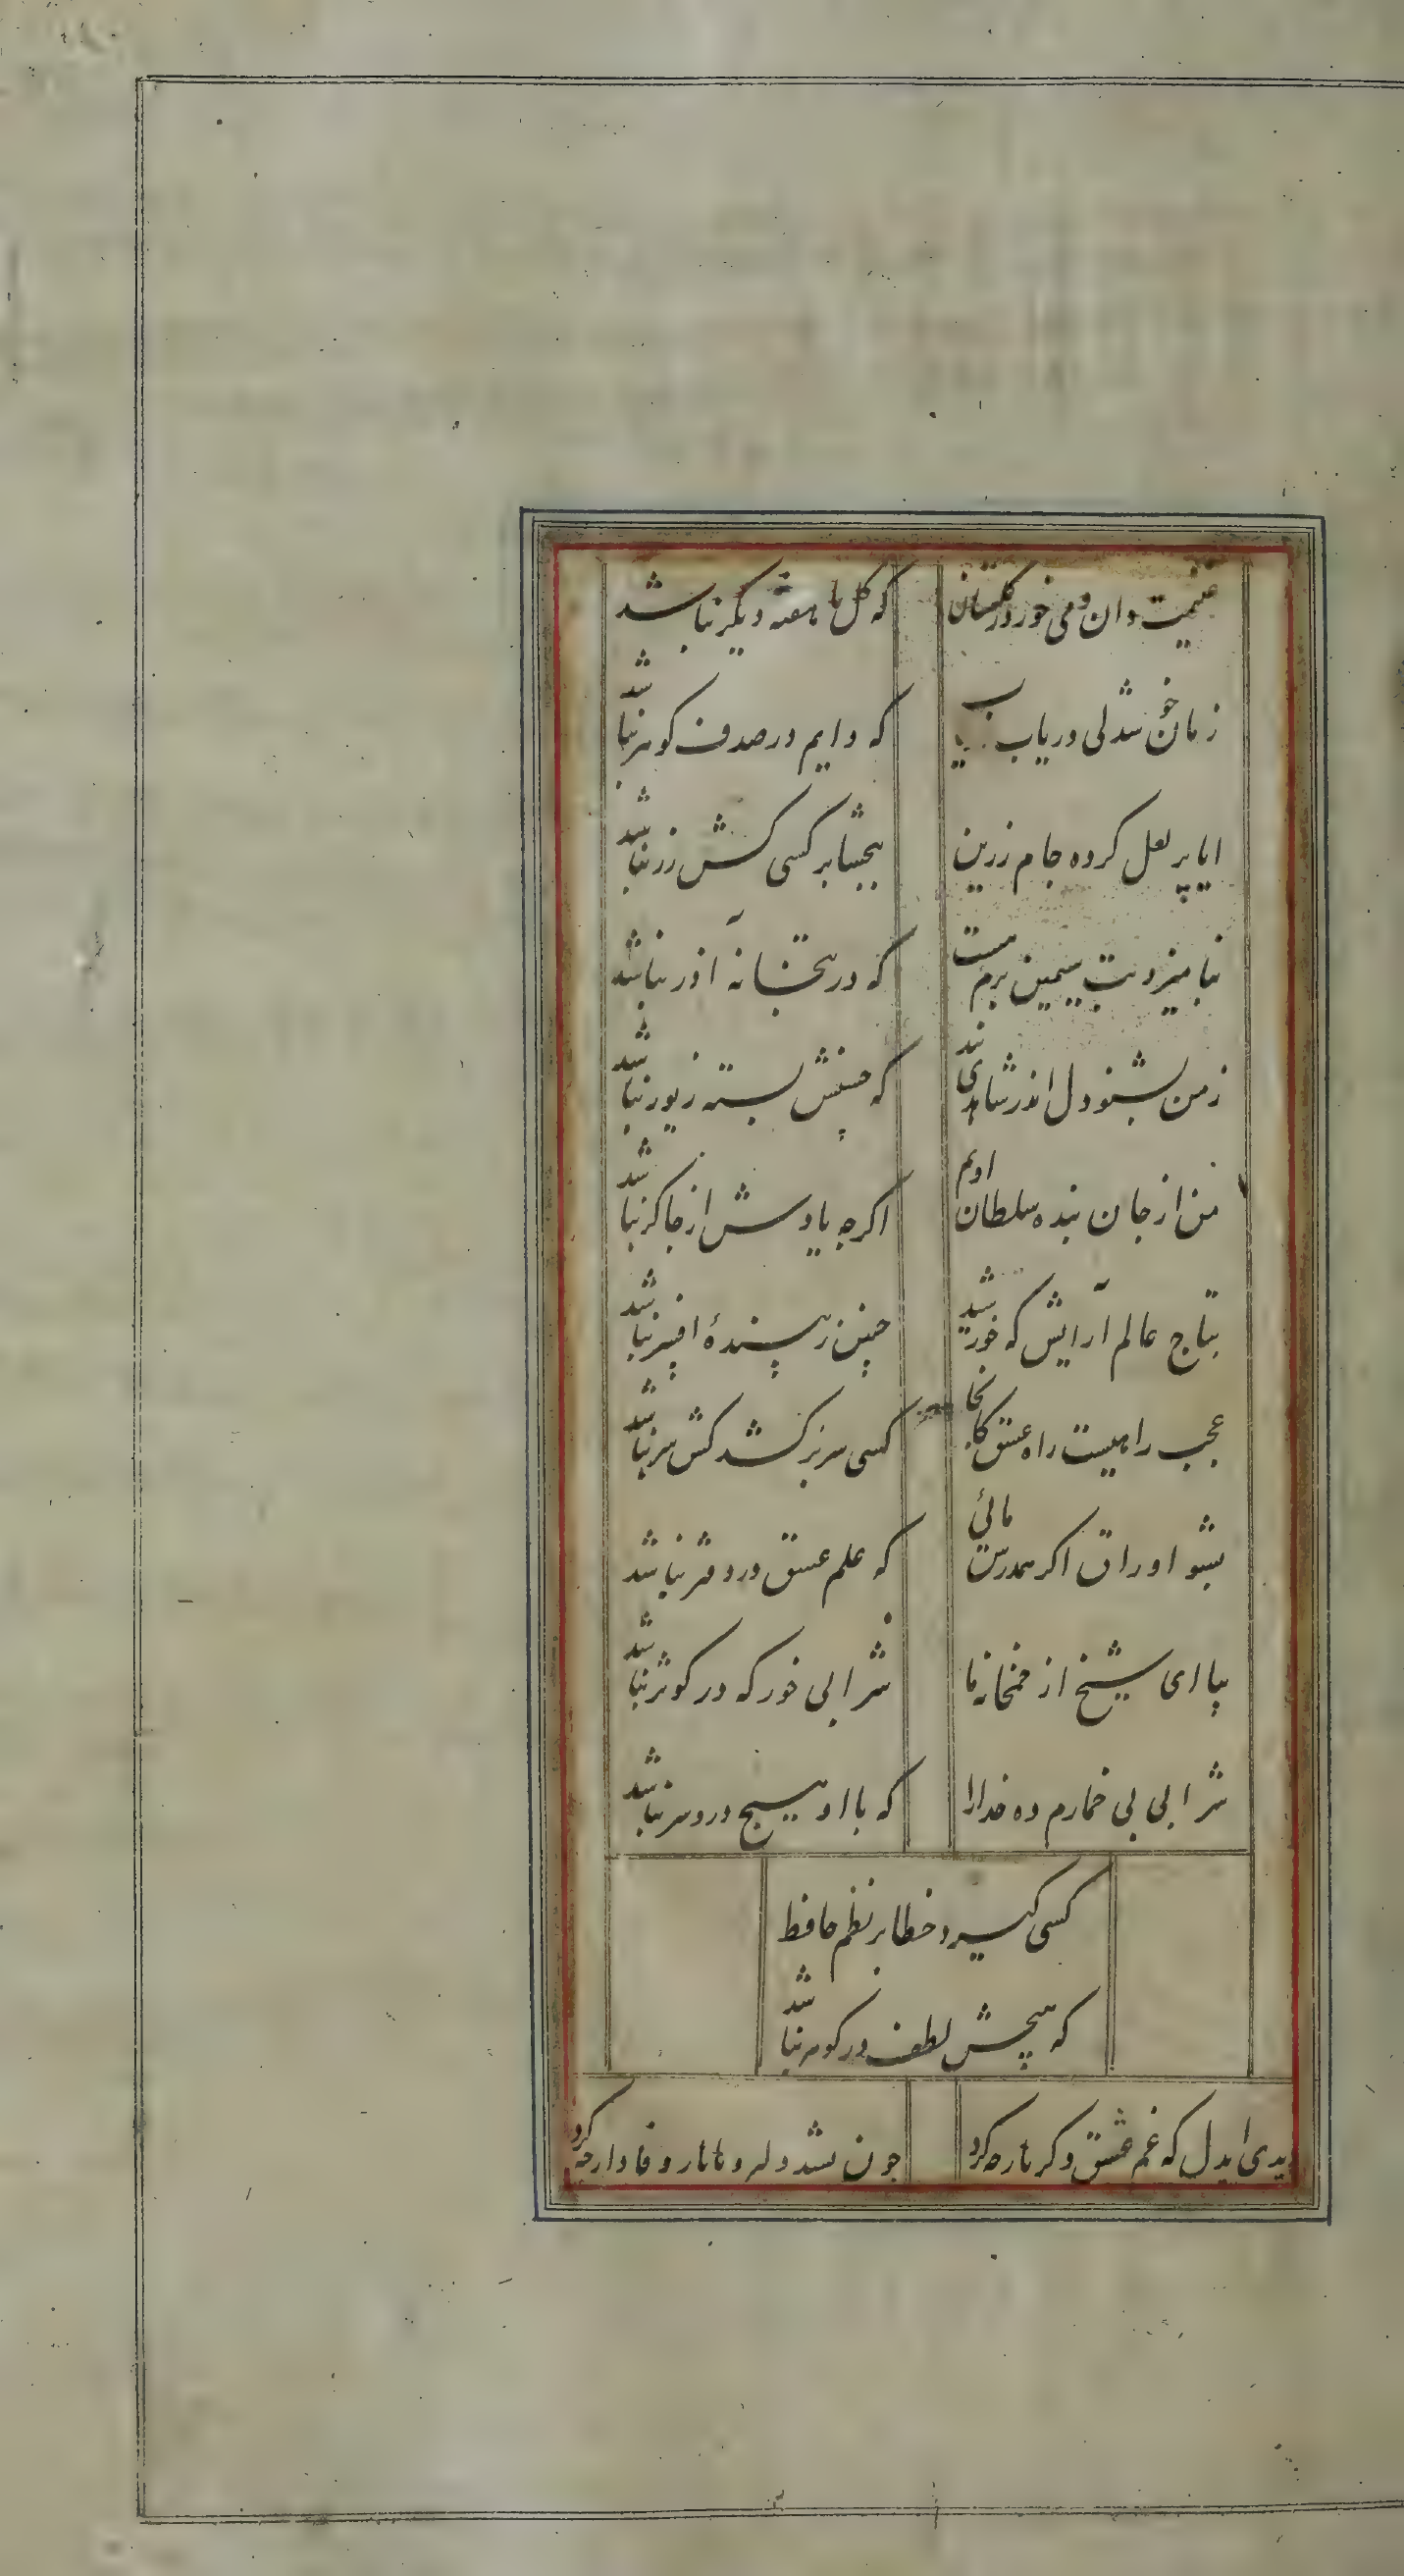 غنیمت دان و می خور در گلستان که گل تا هفته دیگر نباشد
زمان خوشدلی دریاب دریاب که دایم در صدف گوهر نباشد
ایا پر لعل کرده جام زرین ببخشا بر کسی کش زر نباشد
بنامیزد بت سیمین برم هست که در بتخانه آذر نباشد
ز من بشنو دل اندر شاهدی بند که حسنش بسته زیور نباشد
من از جان بنده سلطان اویم اگرچه یادش از چاکر نباشد
بتاج عالم آرایش که خورشید چنین زیبندهٔ افسر نباشد
عجب راهیست راه عشق کانجا کسی سر برکشد کش سر نباشد
بشو اوراق اگر همدرس مائی که علم عشق در دفتر نباشد
بیا ای شیخ از خمخانه ما شرابی خور که در کوثر نباشد
شرابی بی خمارم ده خدارا که با او هیچ درد سر نباشد
کسی گیرد خطا بر نظم حافظ
که هیچش لطف در گوهر نباشد
دیدی ایدل که غم عشق دگر باره چه کرد چون بشد دلبر و با یار وفادار چه کرد